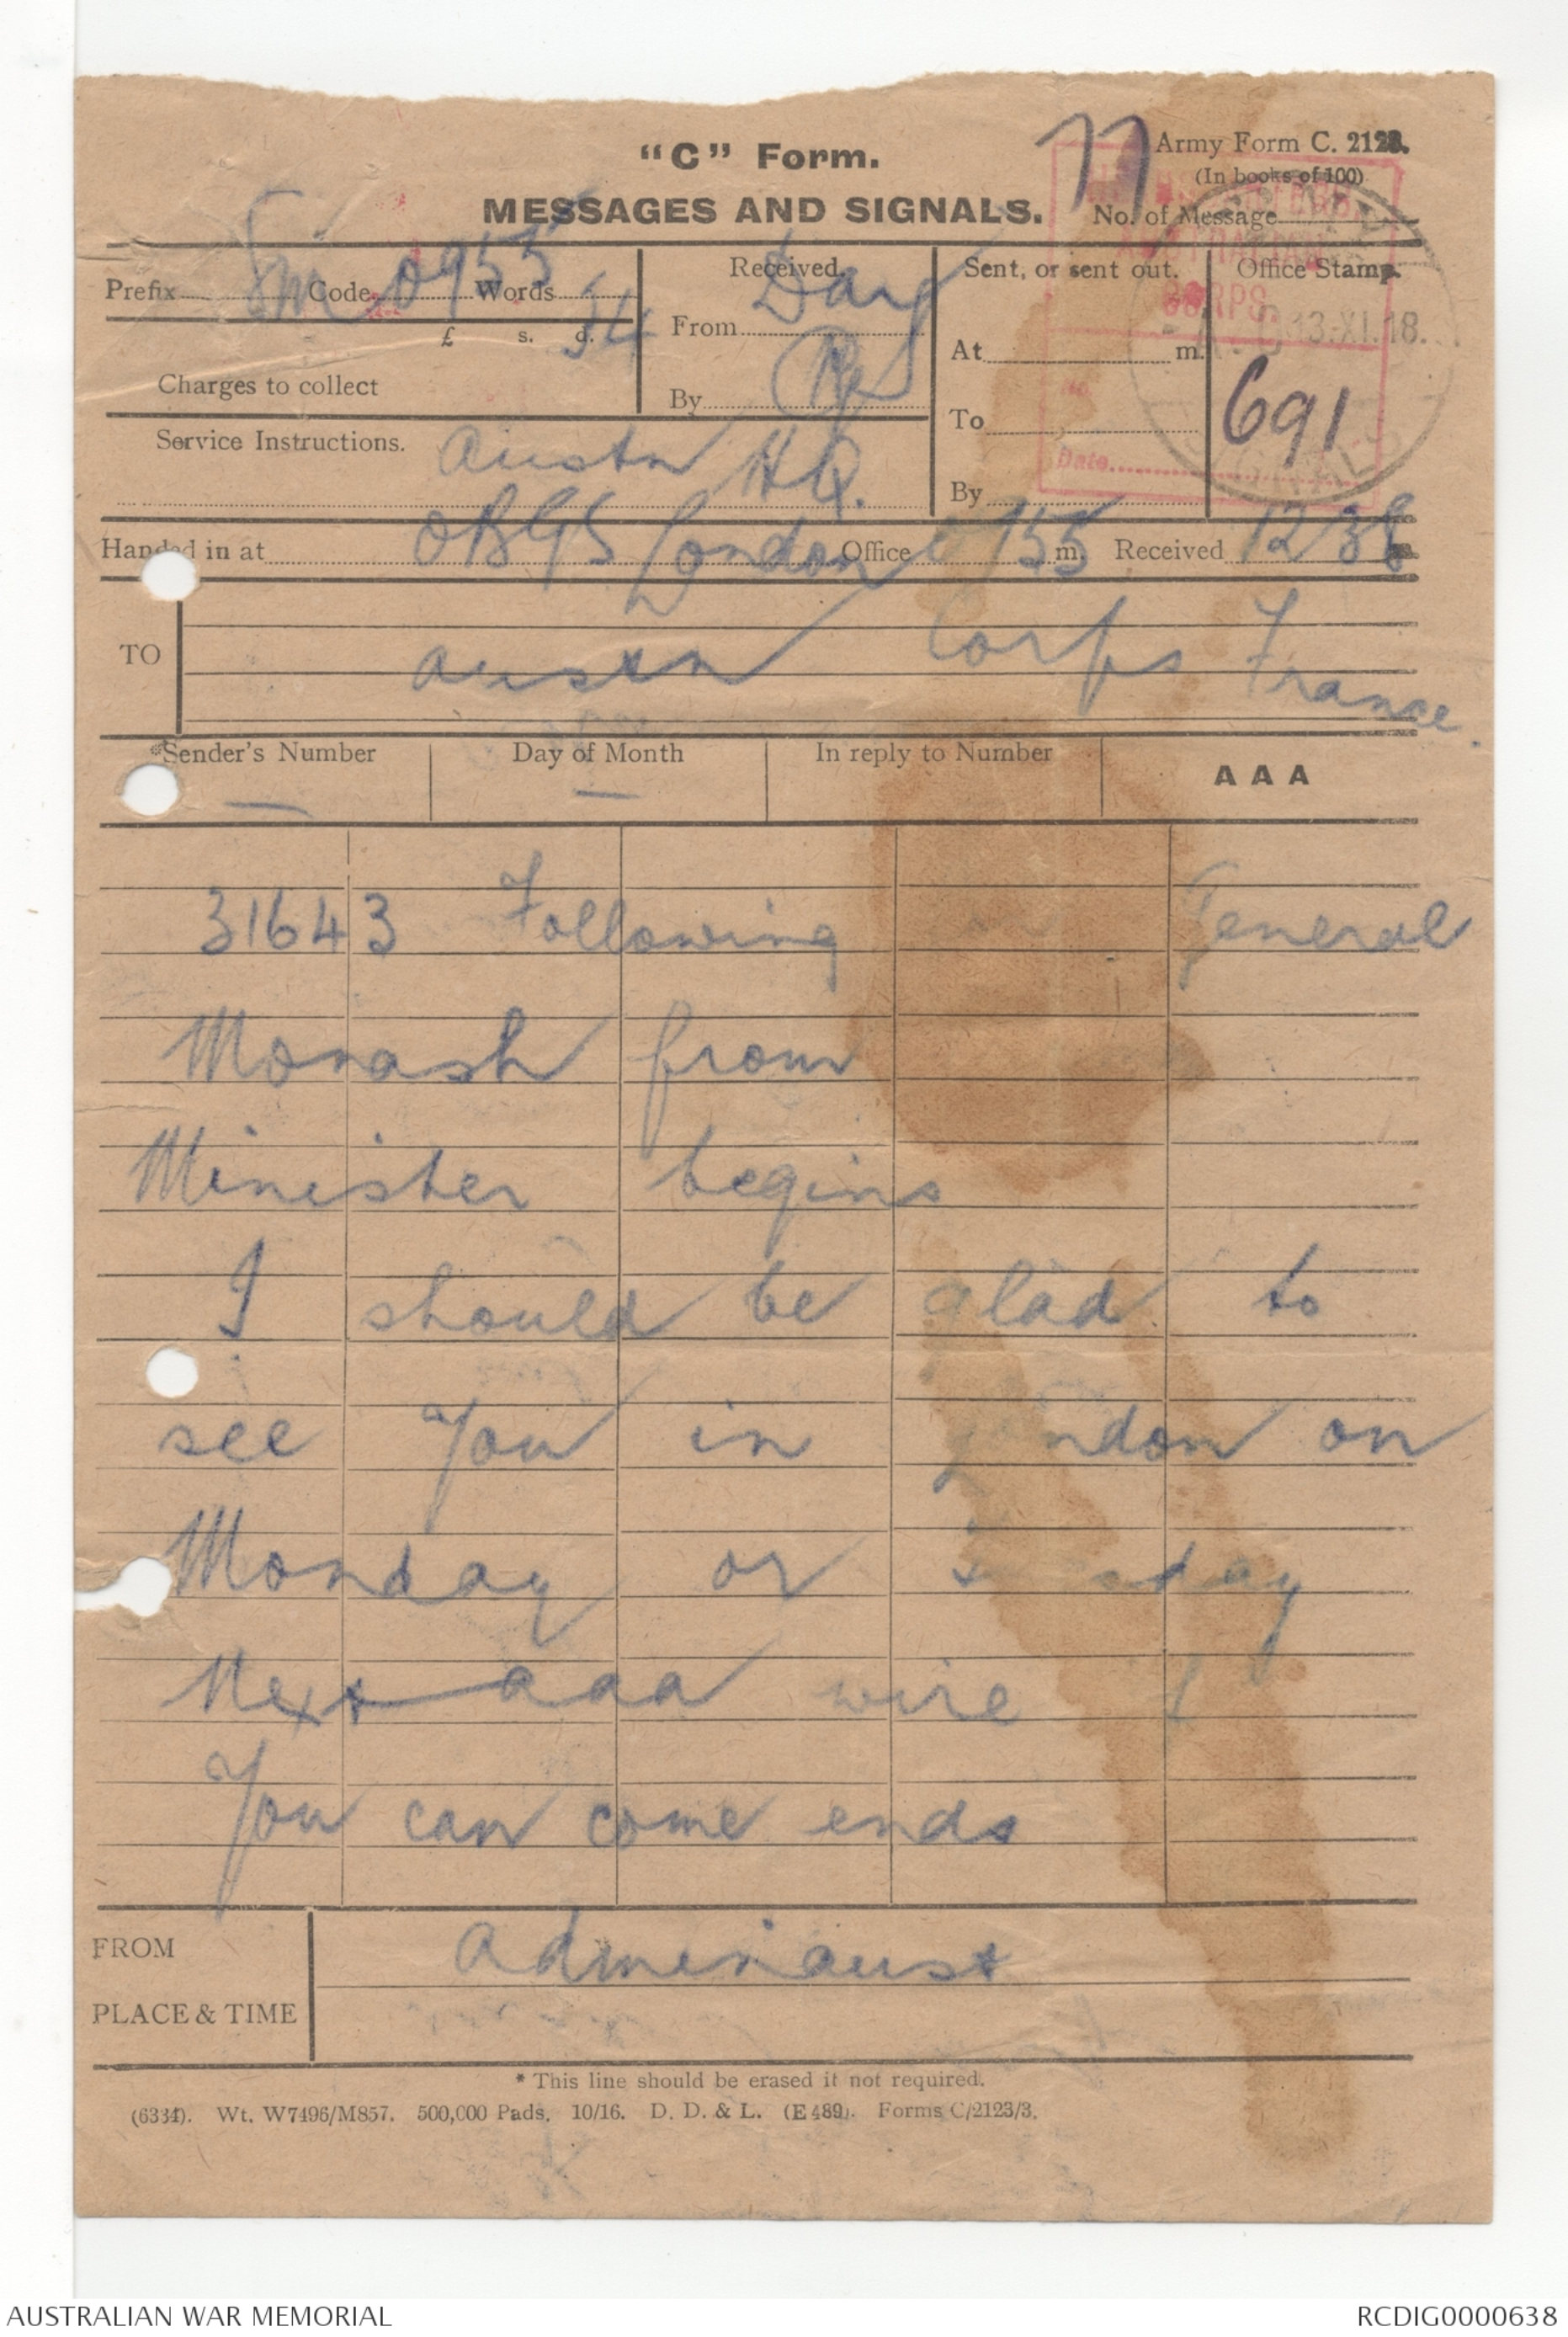 "C" Form.
Army Form C. 2123.
(In books of 100)
MESSAGES AND SIGNALS.
No. of Message
Prefix Sm Code 0955 Words 34
£ s. d.
Charges to collect
Received
From
By
Sent, or sent out.
At m.
To
By
Office Stamp.
HEADQUARTERS
AUSTRALIAN
CORPS.
No.
Date
13.XI.18.
SIGNALS
691
Service Instructions. Austn HQ.
Handed in at OBGS London Office 0955 m. Received 1238
TO Austn Corps France.
*Sender's Number
Day of Month
In reply to Number
AAA
— —
31643 Following General
Monash from
Minister begins
I should be glad to
see you in London on
Monday or day
Next aaa wire
you can come ends
FROM Adminaust
PLACE & TIME
* This line should be erased if not required.
(6334). Wt. W7496/M857. 500,000 Pads. 10/16. D. D. & L. (E 489). Forms C/2123/3.
AUSTRALIAN WAR MEMORIAL
RCDIG0000638